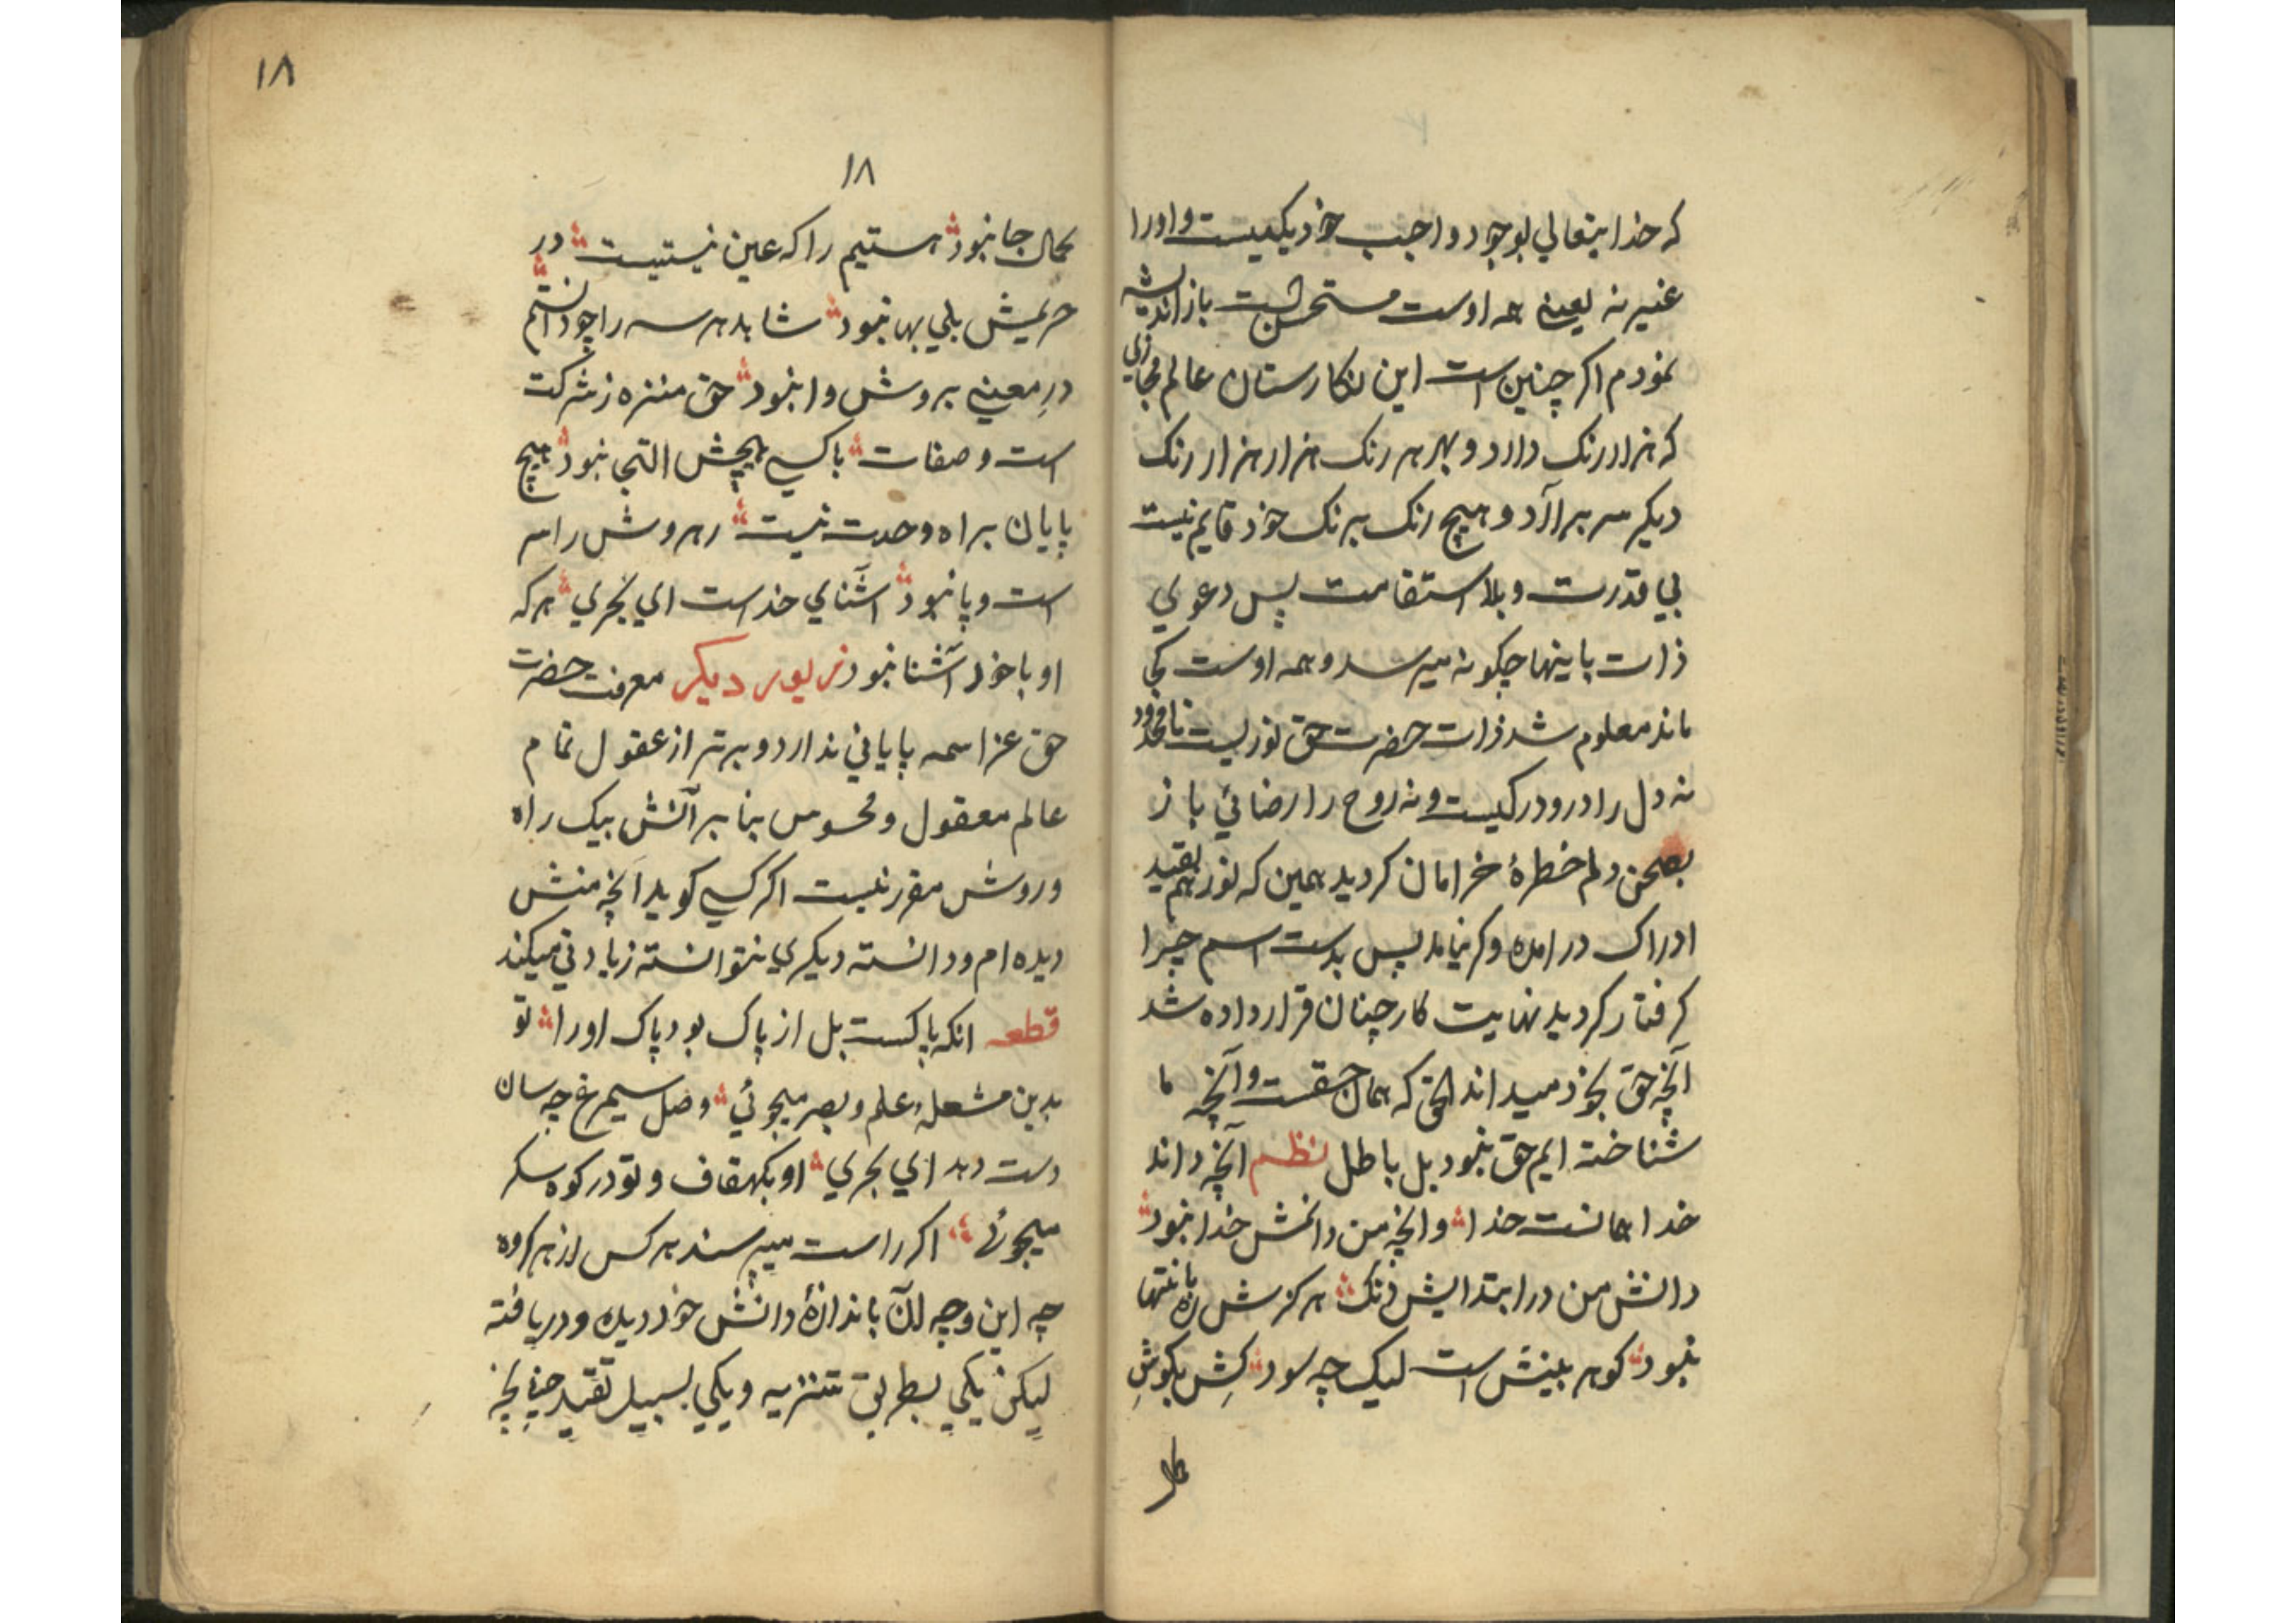 که خدایتعالی بوجود واجب خود یکیست و او را
غیر نه یعنی همه اوست مستحسن است باز اندیشه
نمودم اکر چنین است این نکارستان عالم مجازی
که هزار رنک دارد و بهر هر رنک هزار هزار رنک
دیکر سر برآرد و هیچ رنک برنک خود قایم نیست
بی قدرت و بلا استقامت پس دعوی
ذات باینها چکونه میرسد و همه اوست کی
ماند معلوم شد ذات حضرت حق نوریست نامحدود
نه دل را درو درکیست و نه روح را رضائی باز
بصحن دلم خطرهٔ خرامان کردید همین که نور هم بقید
ادراک در امده وکر نیامد پس بدست اسم چرا
کرفتار کردید نهایت کار چنان قرار داده شد
آنچه حق بخود میداند الحق که همان حقست و آنچه ما
شناخته ایم حق نبود بل باطل نظم آنچه داند
خدا همانست خدا وانچه من دانمش خدا نبود
دانش من در ابتدایش دنک هرکزش ره بانتها
نبود کوهر بینش است لیک چه سود کِش بکوشِ
۱۸
۱۸
کمال جا نبود هستیم را که عین نیستیست در
حریمش بلی بها نبود شاهد هر سه را چو دانستم
درِ معنی بروش وا نبود حق منزه ز شرکت
است و صفات با کسی هیچش التجی نبود هیچ
پایان براه وحدت نیست رهروش را سر
است و پا نبود آشنای خداست ای بحری هرکه
او با خود آشنا نبود زیور دیکر معرفت حضرت
حق عز اسمه پایانی ندارد و برتر از عقول تمام
عالم معقول و محسوس بنا بر آنش بیک راه
و روش مقرر نیست اکر کسی کوید آنچه منش
دیده ام و دانسته دیکری نتوانسته زیادتی میکند
قطعه انکه پاکست بل از پاک بود پاک اورا تو
بدین مشعلهٔ علم و بصر میجوئی وصل سیمرغ چه سان
دست دهد ای بحری او بکهقاف و تو در کوه سکر
میجوئی اکر راست میپرسند هر کس از هر کروه
چه این و چه آن باندازهٔ دانش خود دیده و دریافته
لیکن یکی بطریق تنزیه و یکی بسبیل تقید چنانچه